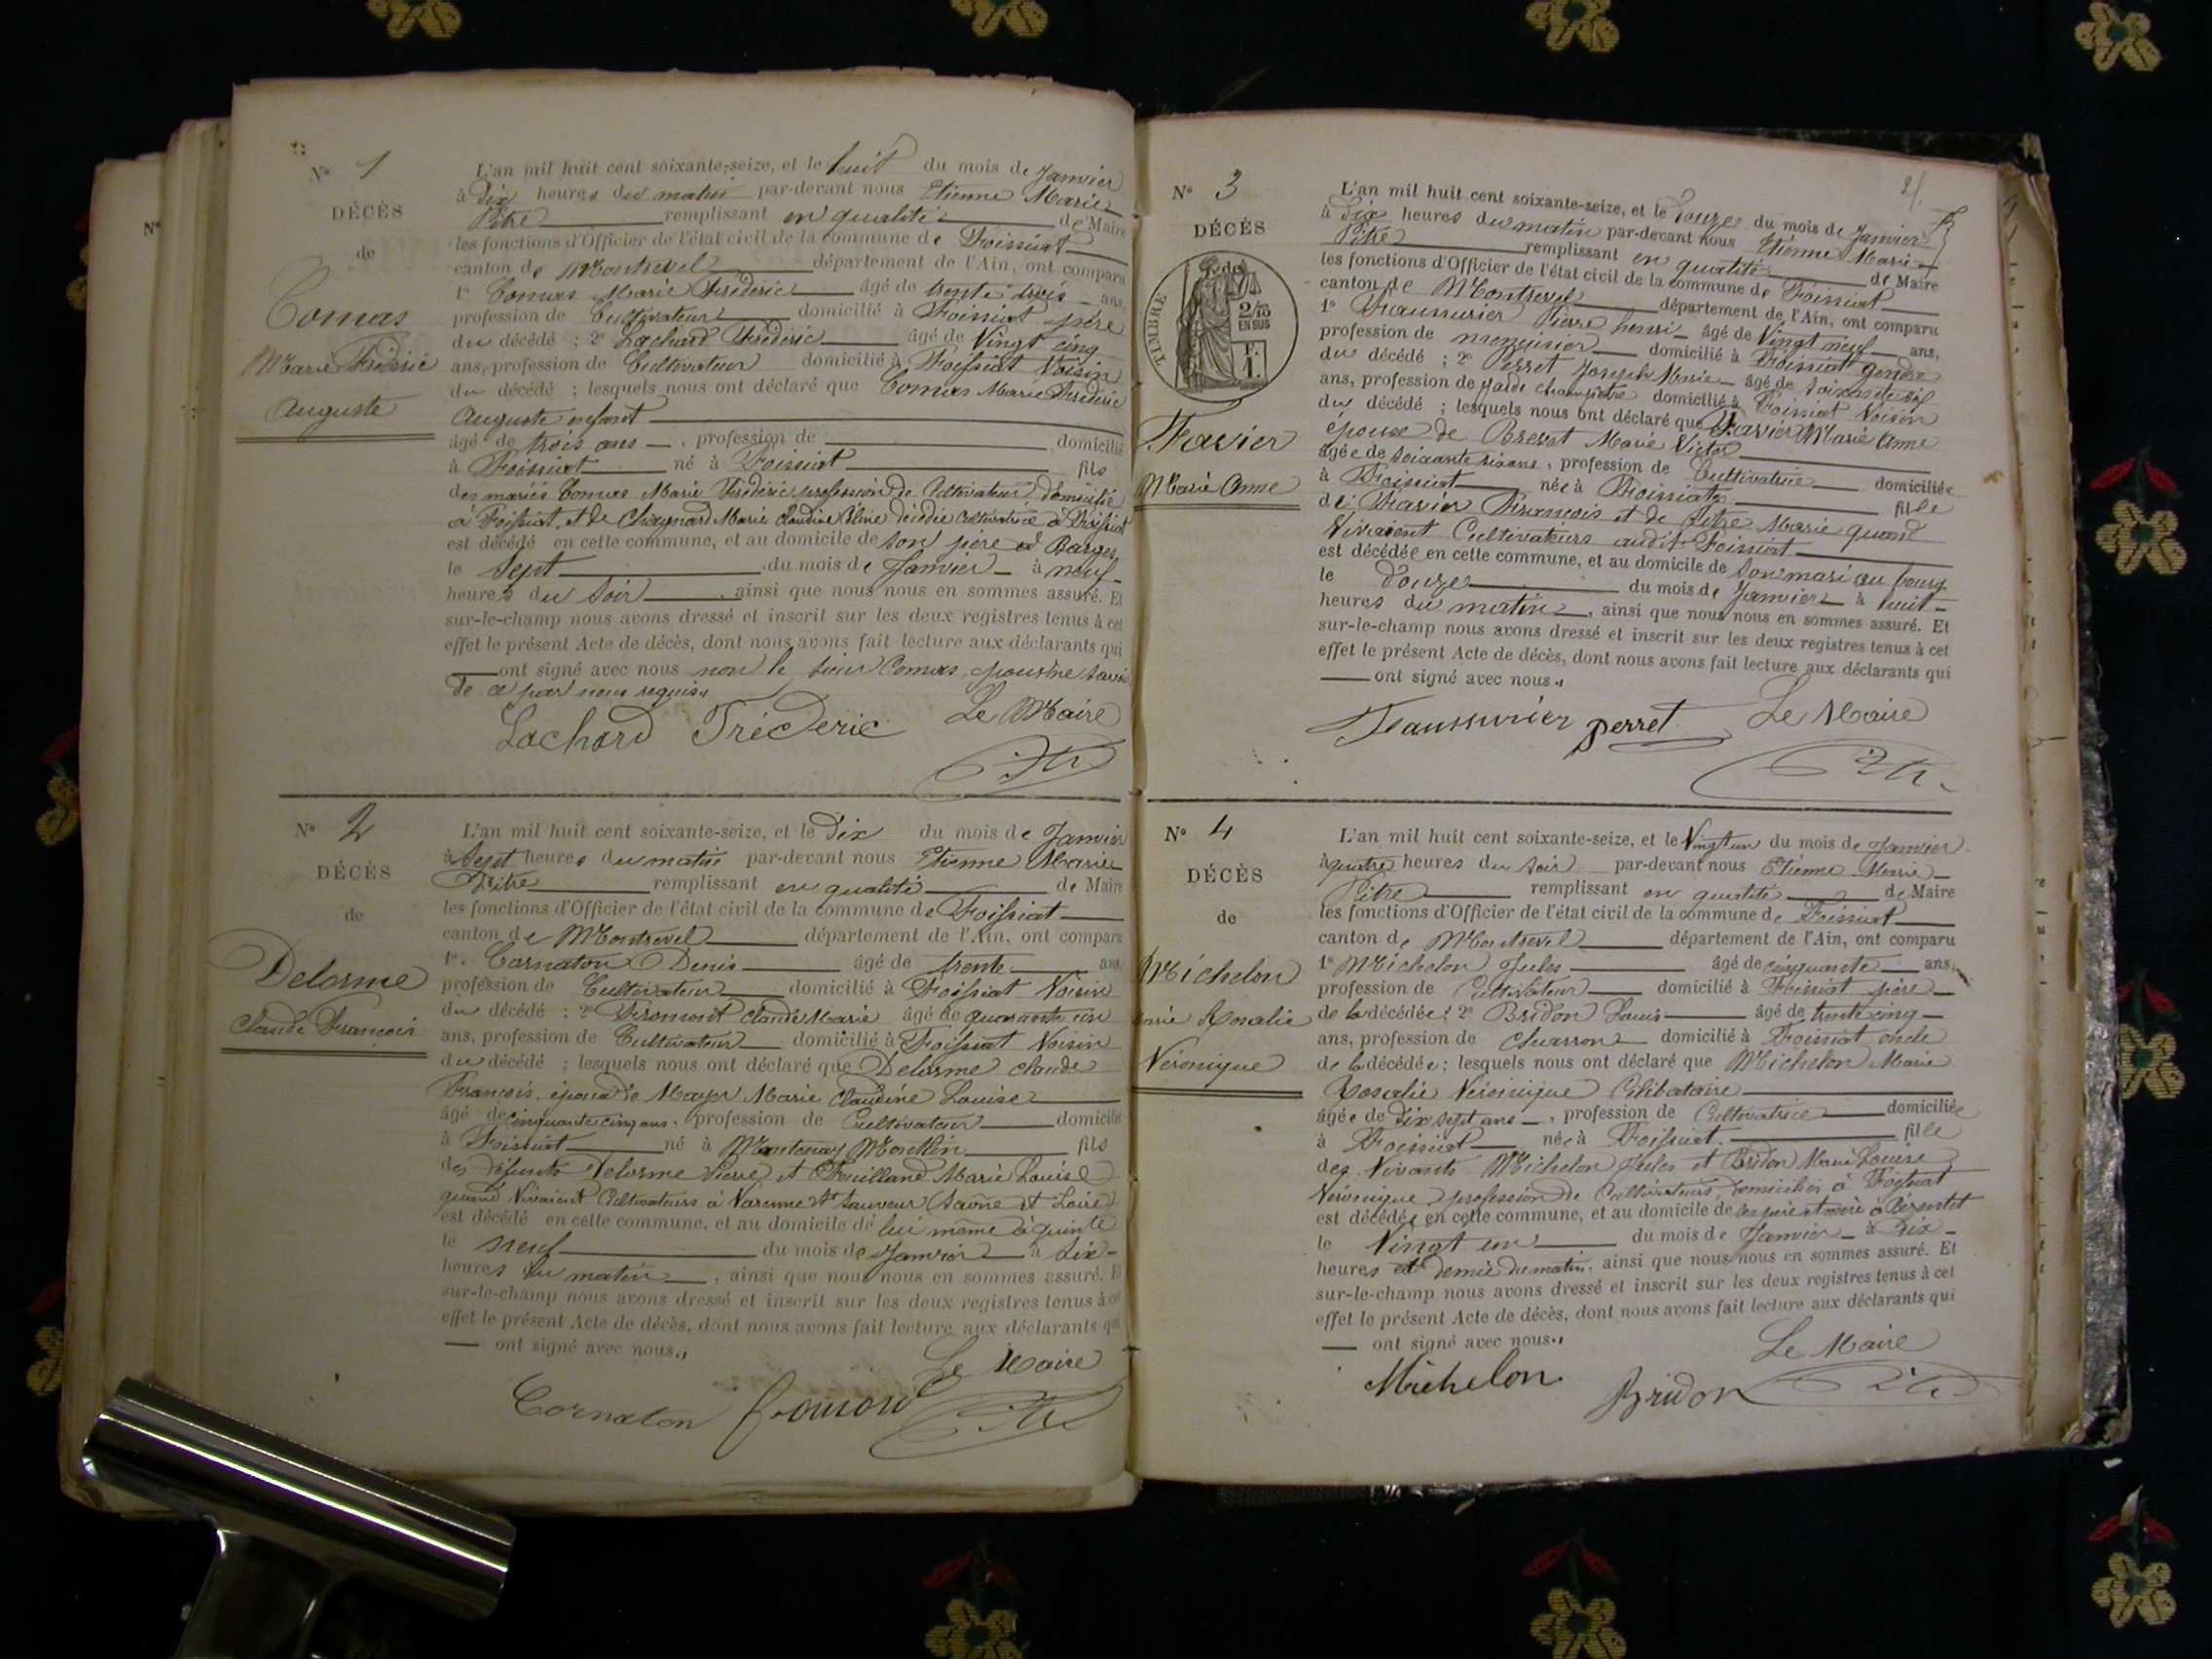 Nº 1
DÉCÈS
de
Comas
Marie Frédéric
Auguste
L'an mil huit cent soixante-seize, et le huit du mois de Janvier
à Dix heures du matin par-devant nous Etienne Marie
Pitre remplissant en qualité de Maire
les fonctions d'Officier de l'état civil de la commune de Foissiat
canton de Montrevel département de l'Ain, ont comparu
1º Comas Marie Frédéric âgé de trente trois ans
profession de Cultivateur domicilié à Foissiat père
du décédé ; 2º Lachard Frédéric âgé de Vingt cinq
ans, profession de Cultivateur domicilié à Foissiat Voisin
du décédé ; lesquels nous ont déclaré que Comas Marie Frédéric
Auguste enfant
âgé de trois ans , profession de domicilié
à Foissiat né à Foissiat fils
des mariés Comas Marie Frédéric profession de Cultivateur domicilié
à Foissiat, et de Chaynard Marie Claudine décédée Cultivatrice à Foissiat
est décédé en cette commune, et au domicile de son père à Barges
le Sept du mois de Janvier à neuf
heures du Soir , ainsi que nous nous en sommes assuré. Et
sur-le-champ nous avons dressé et inscrit sur les deux registres tenus à cet
effet le présent Acte de décès, dont nous avons fait lecture aux déclarants qui
ont signé avec nous non le sieur Comas, pour ne savoir
de ce par nous requis.
Lachard Fréderic Le Maire
Nº 2
DÉCÈS
de
Delorme
Claude François
L'an mil huit cent soixante-seize, et le Dix du mois de Janvier
à Sept heures du matin par-devant nous Etienne Marie
Pitre remplissant en qualité de Maire
les fonctions d'Officier de l'état civil de la commune de Foissiat
canton de Montrevel département de l'Ain, ont comparu
1º Cornaton Denis âgé de trente ans
profession de Cultivateur domicilié à Foissiat Voisin
du décédé ; 2º Fromont Claude Marie âgé de quarante un
ans, profession de Cultivateur domicilié à Foissiat Voisin
du décédé ; lesquels nous ont déclaré que Delorme Claude
François, époux de Mayer Marie Claudine Louise
âgé de cinquante cinq ans, profession de Cultivateur domicilié
à Foissiat né à Mantenay Montlin fils
des défunts Delorme Pierre et Feuilland Marie Louise
quand Vivaient Cultivateurs à Varenne St Sauveur (Saône et Loire)
est décédé en cette commune, et au domicile de lui même
le neuf du mois de Janvier à Six
heures du matin , ainsi que nous nous en sommes assuré. Et
sur-le-champ nous avons dressé et inscrit sur les deux registres tenus à cet
effet le présent Acte de décès, dont nous avons fait lecture aux déclarants qui
ont signé avec nous.
Le Maire
Cornaton fromont
Nº 3
DÉCÈS
TIMBRE
2/10
EN SUS
F.
1.
Favier
Marie Anne
L'an mil huit cent soixante-seize, et le Douze du mois de Janvier
à Dix heures du matin par-devant nous Etienne Marie
Pitre remplissant en qualité de Maire
les fonctions d'Officier de l'état civil de la commune de Foissiat
canton de Montrevel département de l'Ain, ont comparu
1º Faussurier Pierre henri âgé de Vingt neuf ans,
profession de menuisier domicilié à Foissiat gendre
du décédé ; 2º Perret Joseph Marie âgé de Soixante six
ans, profession de garde champêtre domicilié à Foissiat Voisin
du décédé ; lesquels nous ont déclaré que Favier Marie Anne
épouse de Brevet Marie Victor
âgée de soixante six ans, profession de Cultivatrice domiciliée
à Foissiat née à Foissiat fille
de Favier François et de Pitre Marie quand
Vivaient Cultivateurs audit Foissiat
est décédée en cette commune, et au domicile de son mari au bourg
le Douze du mois de Janvier à huit
heures du matin , ainsi que nous nous en sommes assuré. Et
sur-le-champ nous avons dressé et inscrit sur les deux registres tenus à cet
effet le présent Acte de décès, dont nous avons fait lecture aux déclarants qui
ont signé avec nous.
Faussurier perret Le Maire
Nº 4
DÉCÈS
de
Michelon
Marie Rosalie
Véronique
L'an mil huit cent soixante-seize, et le Vingt un du mois de Janvier
à quatre heures du soir par-devant nous Etienne Marie
Pitre remplissant en qualité de Maire
les fonctions d'Officier de l'état civil de la commune de Foissiat
canton de Montrevel département de l'Ain, ont comparu
1º Michelon Jules âgé de cinquante ans,
profession de Cultivateur domicilié à Foissiat père
de la décédée ; 2º Bridon Louis âgé de trente cinq
ans, profession de Charron domicilié à Foissiat oncle
de la décédée ; lesquels nous ont déclaré que Michelon Marie
Rosalie Véronique Célibataire
âgée de Dix sept ans , profession de Cultivatrice domiciliée
à Foissiat née à Foissiat fille
des Vivants Michelon Jules et Bridon Marie Louise
Véronique profession de Cultivateurs, domiciliés à Foissiat
est décédée en cette commune, et au domicile de ses père et mère à
le Vingt un du mois de Janvier à Dix
heures et demie du matin, ainsi que nous nous en sommes assuré. Et
sur-le-champ nous avons dressé et inscrit sur les deux registres tenus à cet
effet le présent Acte de décès, dont nous avons fait lecture aux déclarants qui
ont signé avec nous.
Le Maire
Michelon Bridon